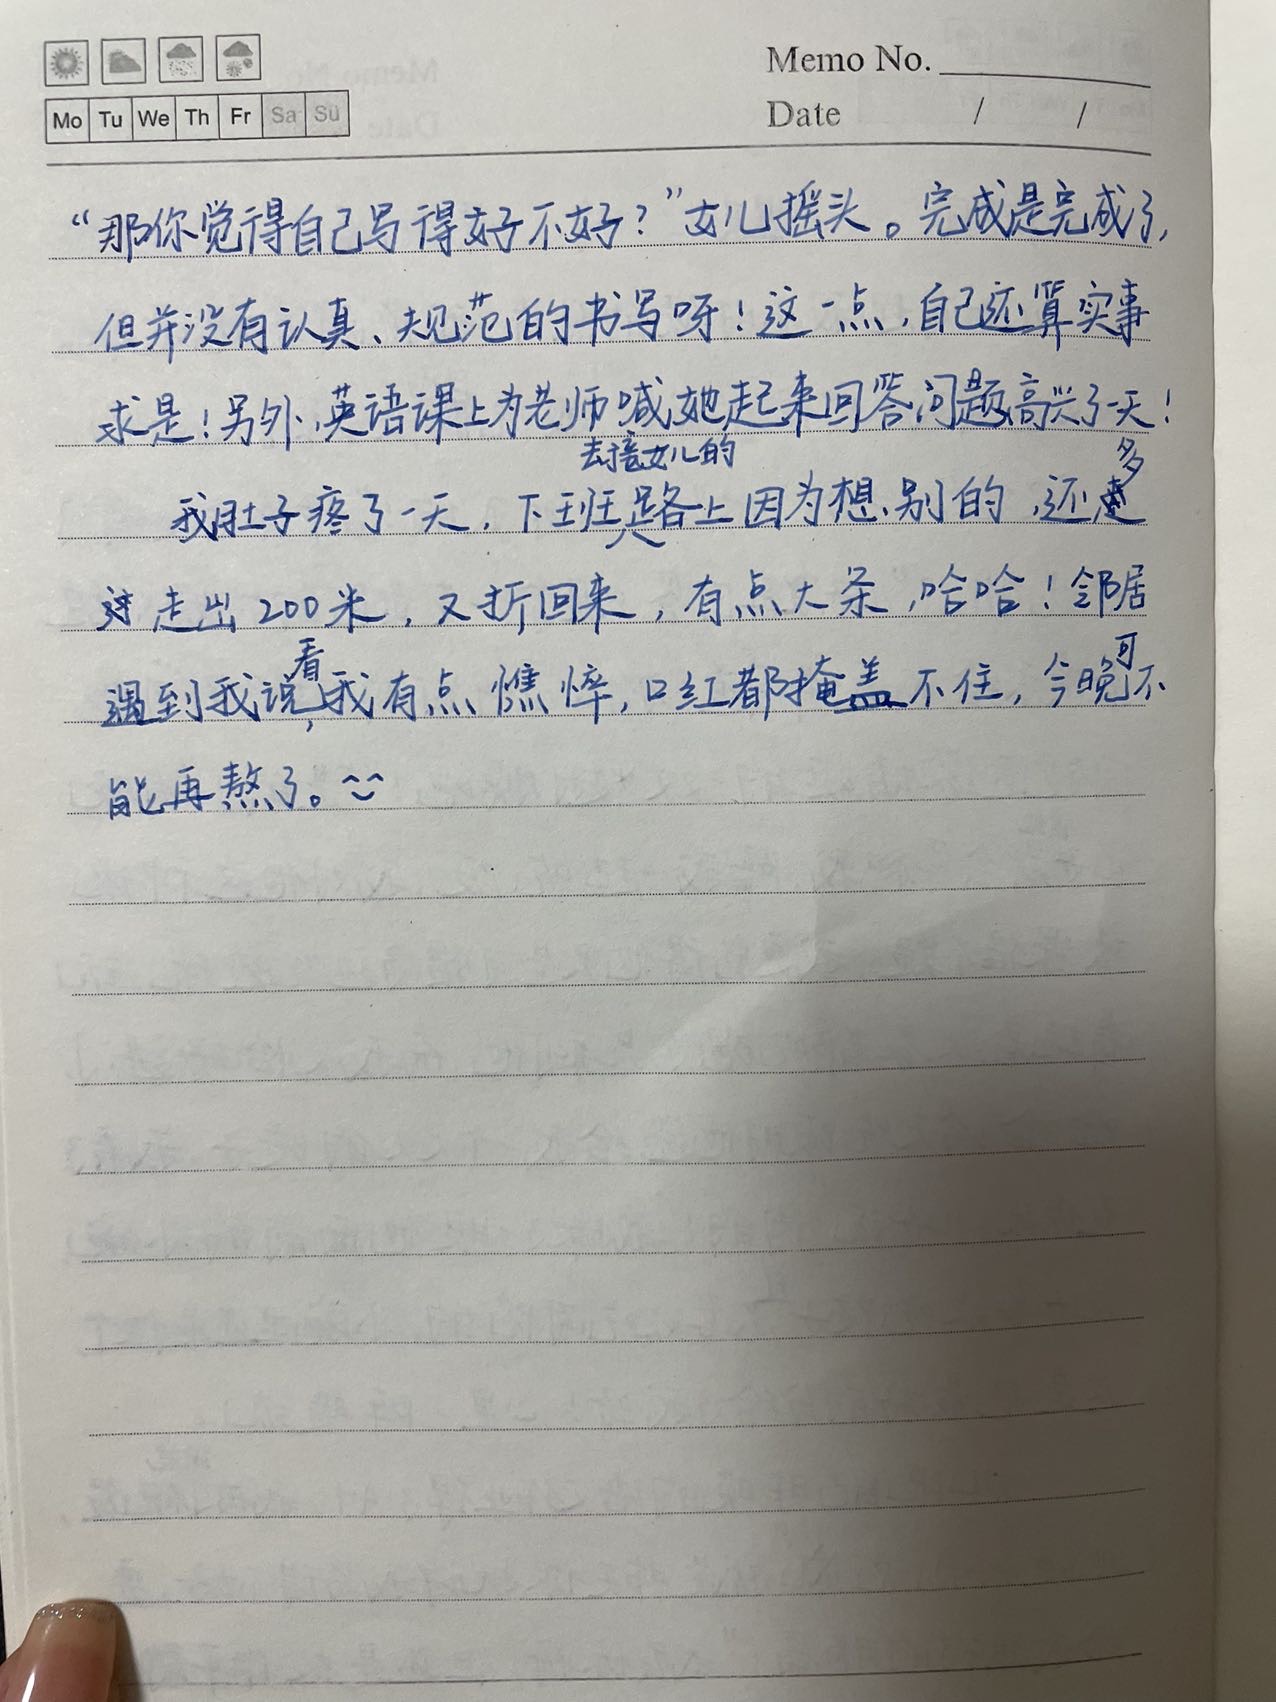 Memo No.
Mo Tu We Th Fr Sa Su
Date / /
“那你觉得自己写得好不好？”女儿摇头。完成是完成了，
但并没有认真、规范的书写呀！这一点，自己还算实事
求是！另外，英语课上为老师喊她起来回答问题高兴了一天！
去接女儿的
多
我肚子疼了一天，下班路上因为想别的，还走
走出200米，又折回来，有点大条，哈哈！邻居
看
可
遇到我说，我有点憔悴，口红都掩盖不住，今晚不
能再熬了。